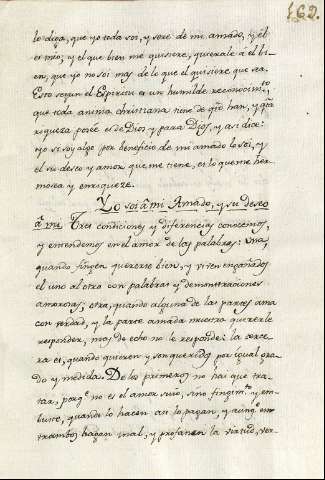 162.
lo diga, que yo toda soi, y seré de mi amado, y él
es mio; y el que bien me quisiere, quierale à él bi-
en, que yo no soi mas de lo que él quisiere que sea.
Esto segun el Espiritu es un humilde reconocimto.
que toda anima christiana tiene de q̃ lo han, y q̃ta
riqueza posée es de Dios y para Dios, y asi dice:
yo si soy algo por beneficio de mi amado lo soi, y
el su deseo y amor que me tiene, es lo que me her-
mosea y enriqueze.
Yo soi à mi Amado, y su deseo
à mi Tres condiciones y diferencias conocemos,
y entendemos en el amor de las palabras: Una,
quando fingen quererse bien, y viven engañados
el uno al otro con palabras y demonstraciones
amorosas; otra, quando alguna de las partes ama
con verdad, y la parte amada muestra quererle
responder, mas de echo no le responde: la terce-
ra es, quando quieren y son queridos por igual gra-
do y medida. De los primeros no hai que tra-
tar, porq̃ no es el amor suio, sino fingimto. y em-
buste, quando lo hacen assi lo pagan, y aunq̃ en-
trambos hagan mal, y profanen la virtud, ver-